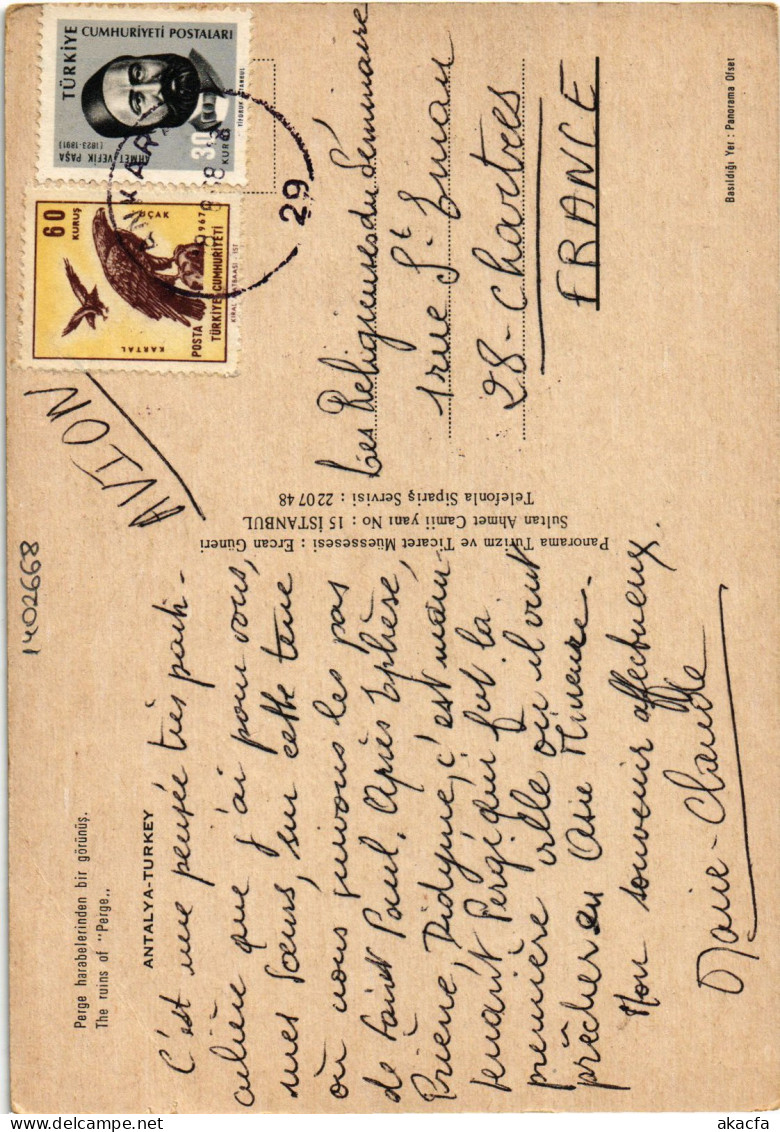 Perge harabelerinden bir görünüş.
The ruins of "Perge,,
ANTALYA-TURKEY
C'est une pensée très parti-
culière que j'ai pour vous,
mes Sœurs, sur cette terre
où nous suivons les pas
de Saint Paul. Après Ephèse,
Priene, Didyme, c'est main-
tenant Pergé qui fut la
première ville où il vint
prêcher en Asie Mineure.
Mon souvenir affectueux.
Marie-Claude
14026668
Panorama Turizm ve Ticaret Müessesesi : Ercan Güneri
Sultan Ahmet Camii yanı No : 15 İSTANBUL
Telefonla Sipariş Servisi : 22 07 48
AVION
TÜRKİYE
CUMHURİYETİ POSTALARI
30
KURUŞ
AHMET VEFİK PAŞA
(1823-1891)
60
KURUŞ
UÇAK
1967
POSTA
TÜRKİYE CUMHURİYETİ
KARTAL
ANKARA
29
Les Religieuses du Séminaire
1 rue St-
28-Chartres
FRANCE
Basıldığı Yer : Panorama Ofset
akacfa